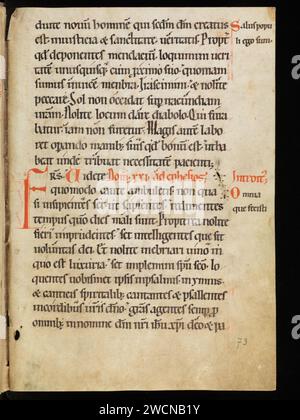 duite novū hominē qui scdm dm creatus
est iniusticia & sanctitate veritatis. Propt
qd deponentes mendaciū loquimini veri
tatem unusquisq; cum proximo suo quoniam
sumus invicē membra. Irascimini & nolite
peccare. Sol non occidat sup iracundiam
vram. Nolite locum dare diabolo. Qui fura
batur iam non furetur. Magis aūt labo
ret operando manib; suis qd bonū est ut ha
beat unde tribuat necessitatē pacienti.
Fr̄s. Videte Dom xxi ad ephesios
quomodo caute ambuletis non qua
si insipientes set ut sapientes redimentes
tempus quō dies mali sunt. Propterea nolite
fieri inprudentes set intelligentes que sit
voluntas dei. Et nolite inebriari vino in
quo est luxuria. set implemini spū sco. lo
quentes vobismet ipsis in psalmis & ymnis
& canticis spiritalib; cantantes & psallentes
in cordibus vris dno. gras agentes semp p
omnib; in nomine dni nri ihu xpi deo & pa
Salus popu
li ego sum.
Introit
Omnia
que fecisti
73
alamy
Image ID: 2WCNB1Y
www.alamy.com